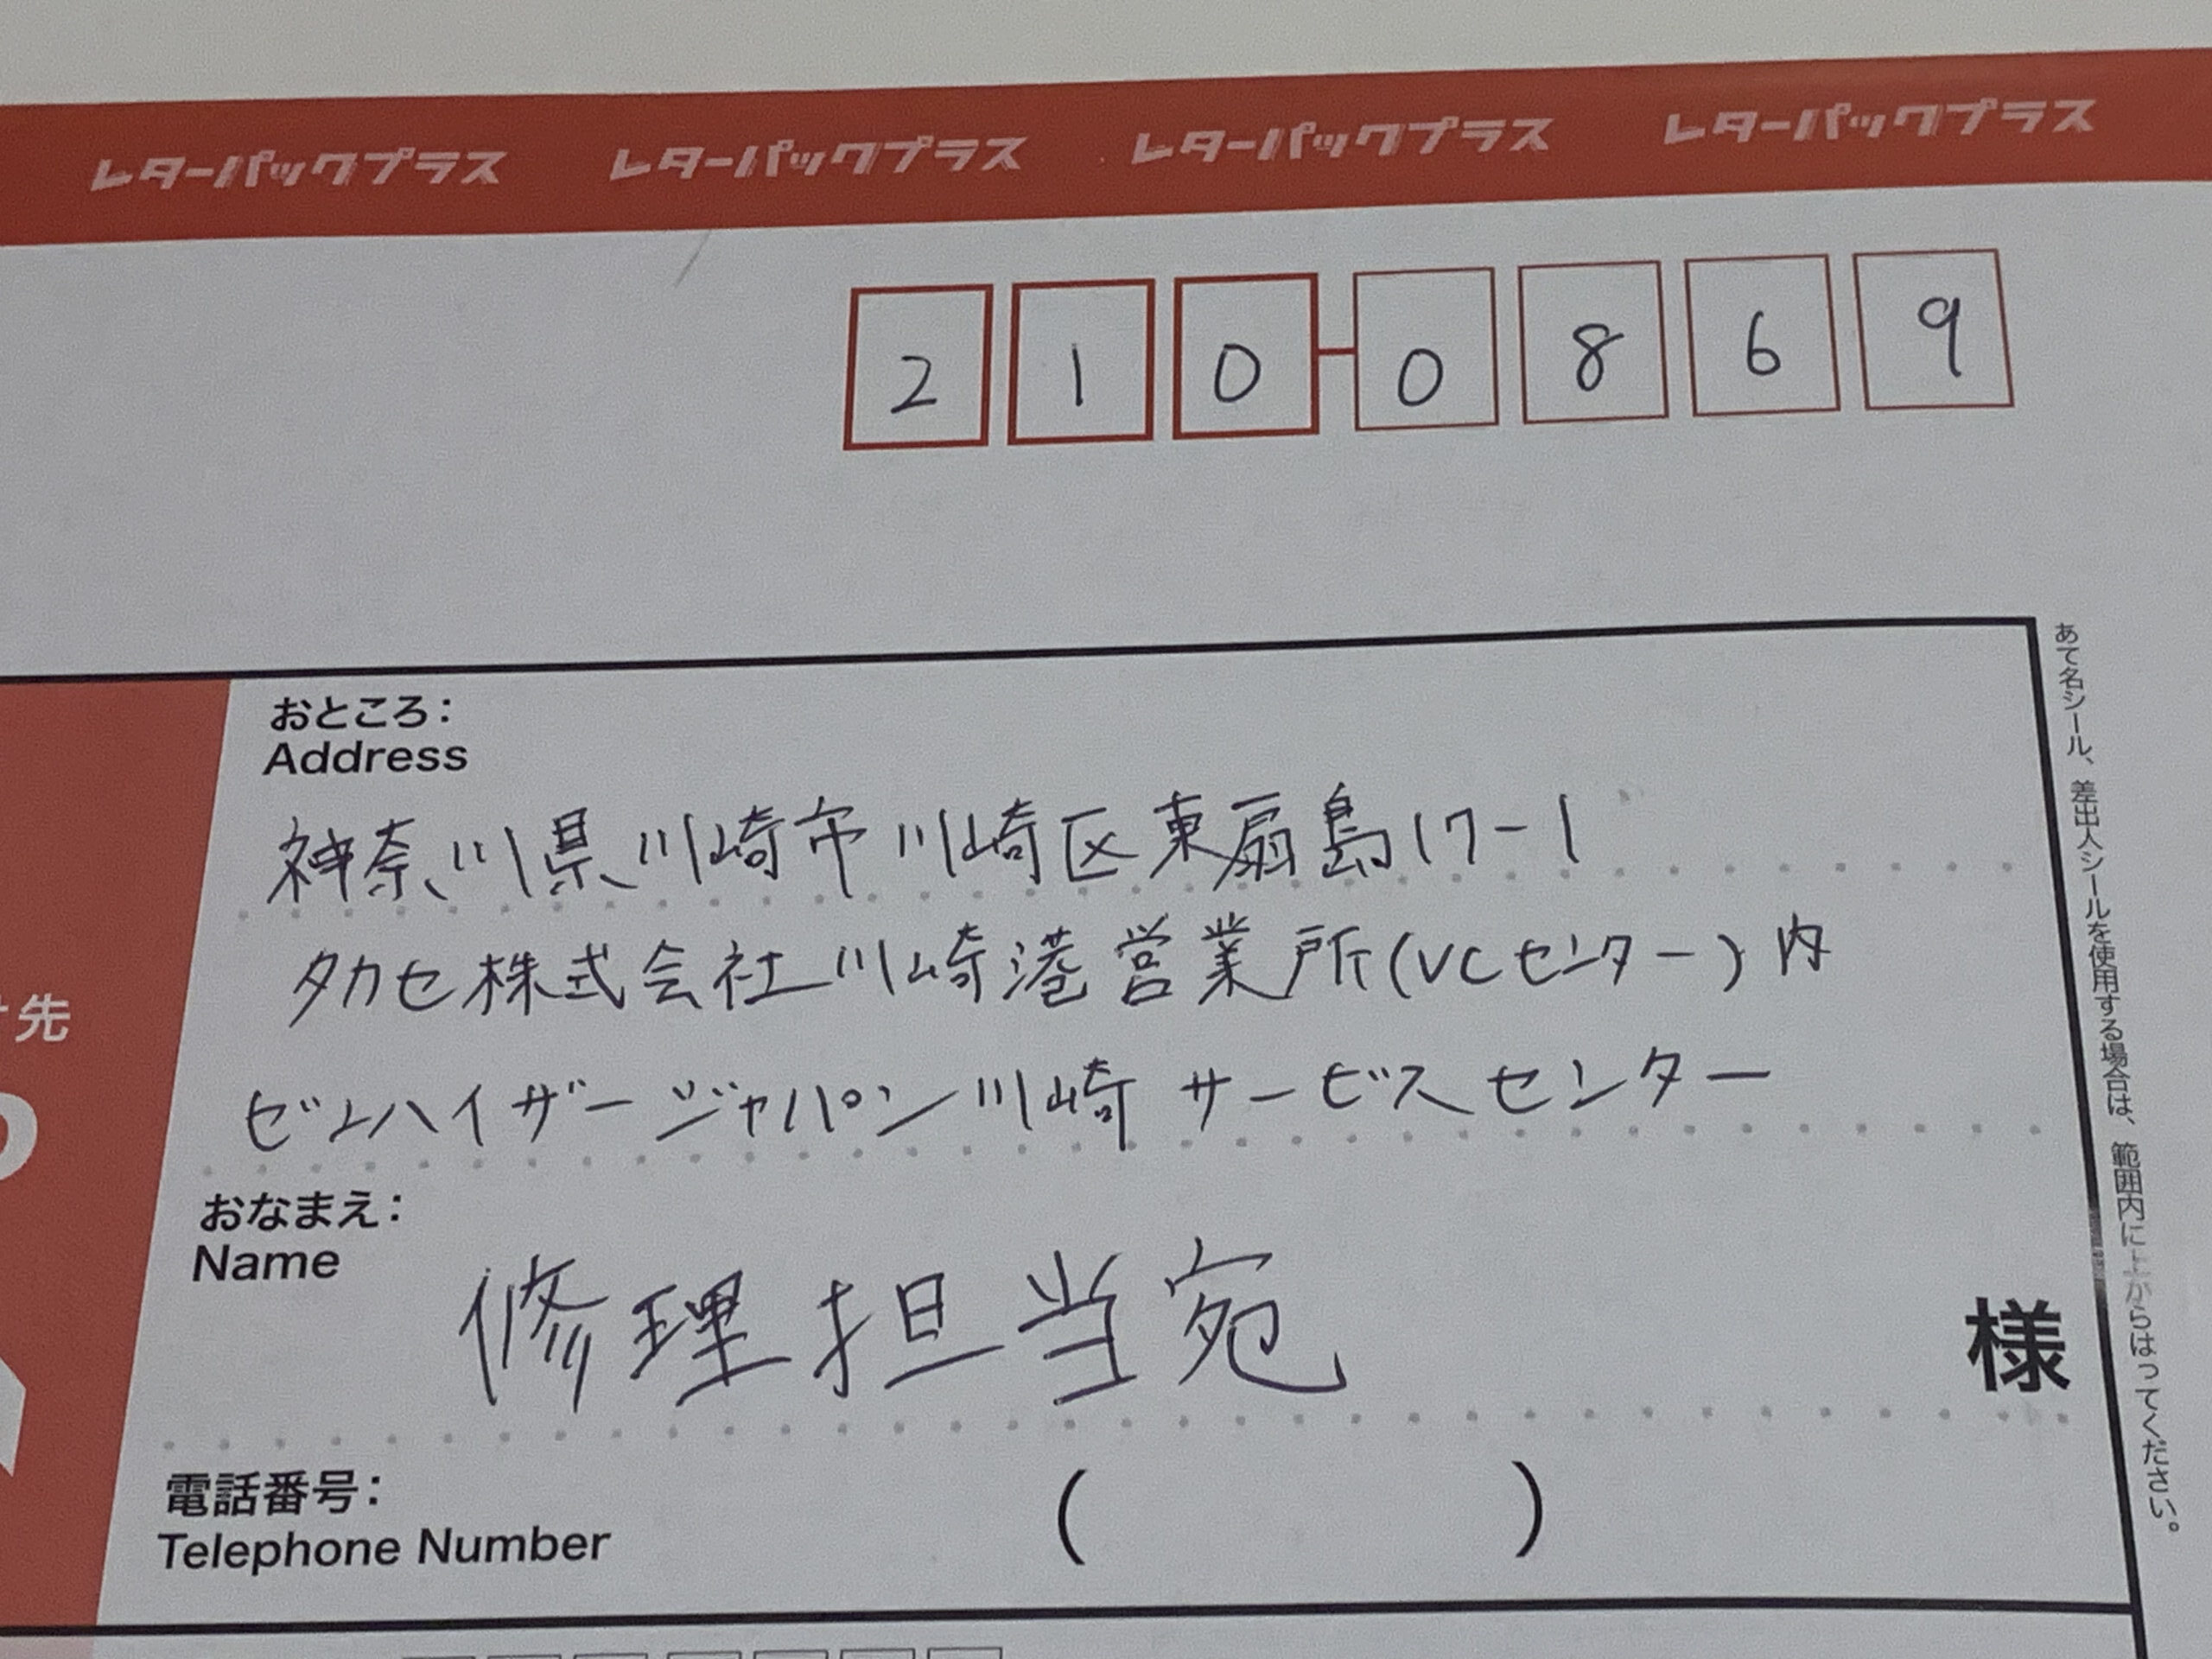 レターパックプラス レターパックプラス レターパックプラス レターパックプラス
210-0869
おところ:
Address
神奈川県川崎市川崎区東扇島17-1
タカセ株式会社川崎港営業所(VCセンター)内
ゼンハイザージャパン川崎サービスセンター
おなまえ:
Name
修理担当宛
様
電話番号:
Telephone Number
( )
先
あて名シール、差出人シールを使用する場合は、範囲内に上からはってください。